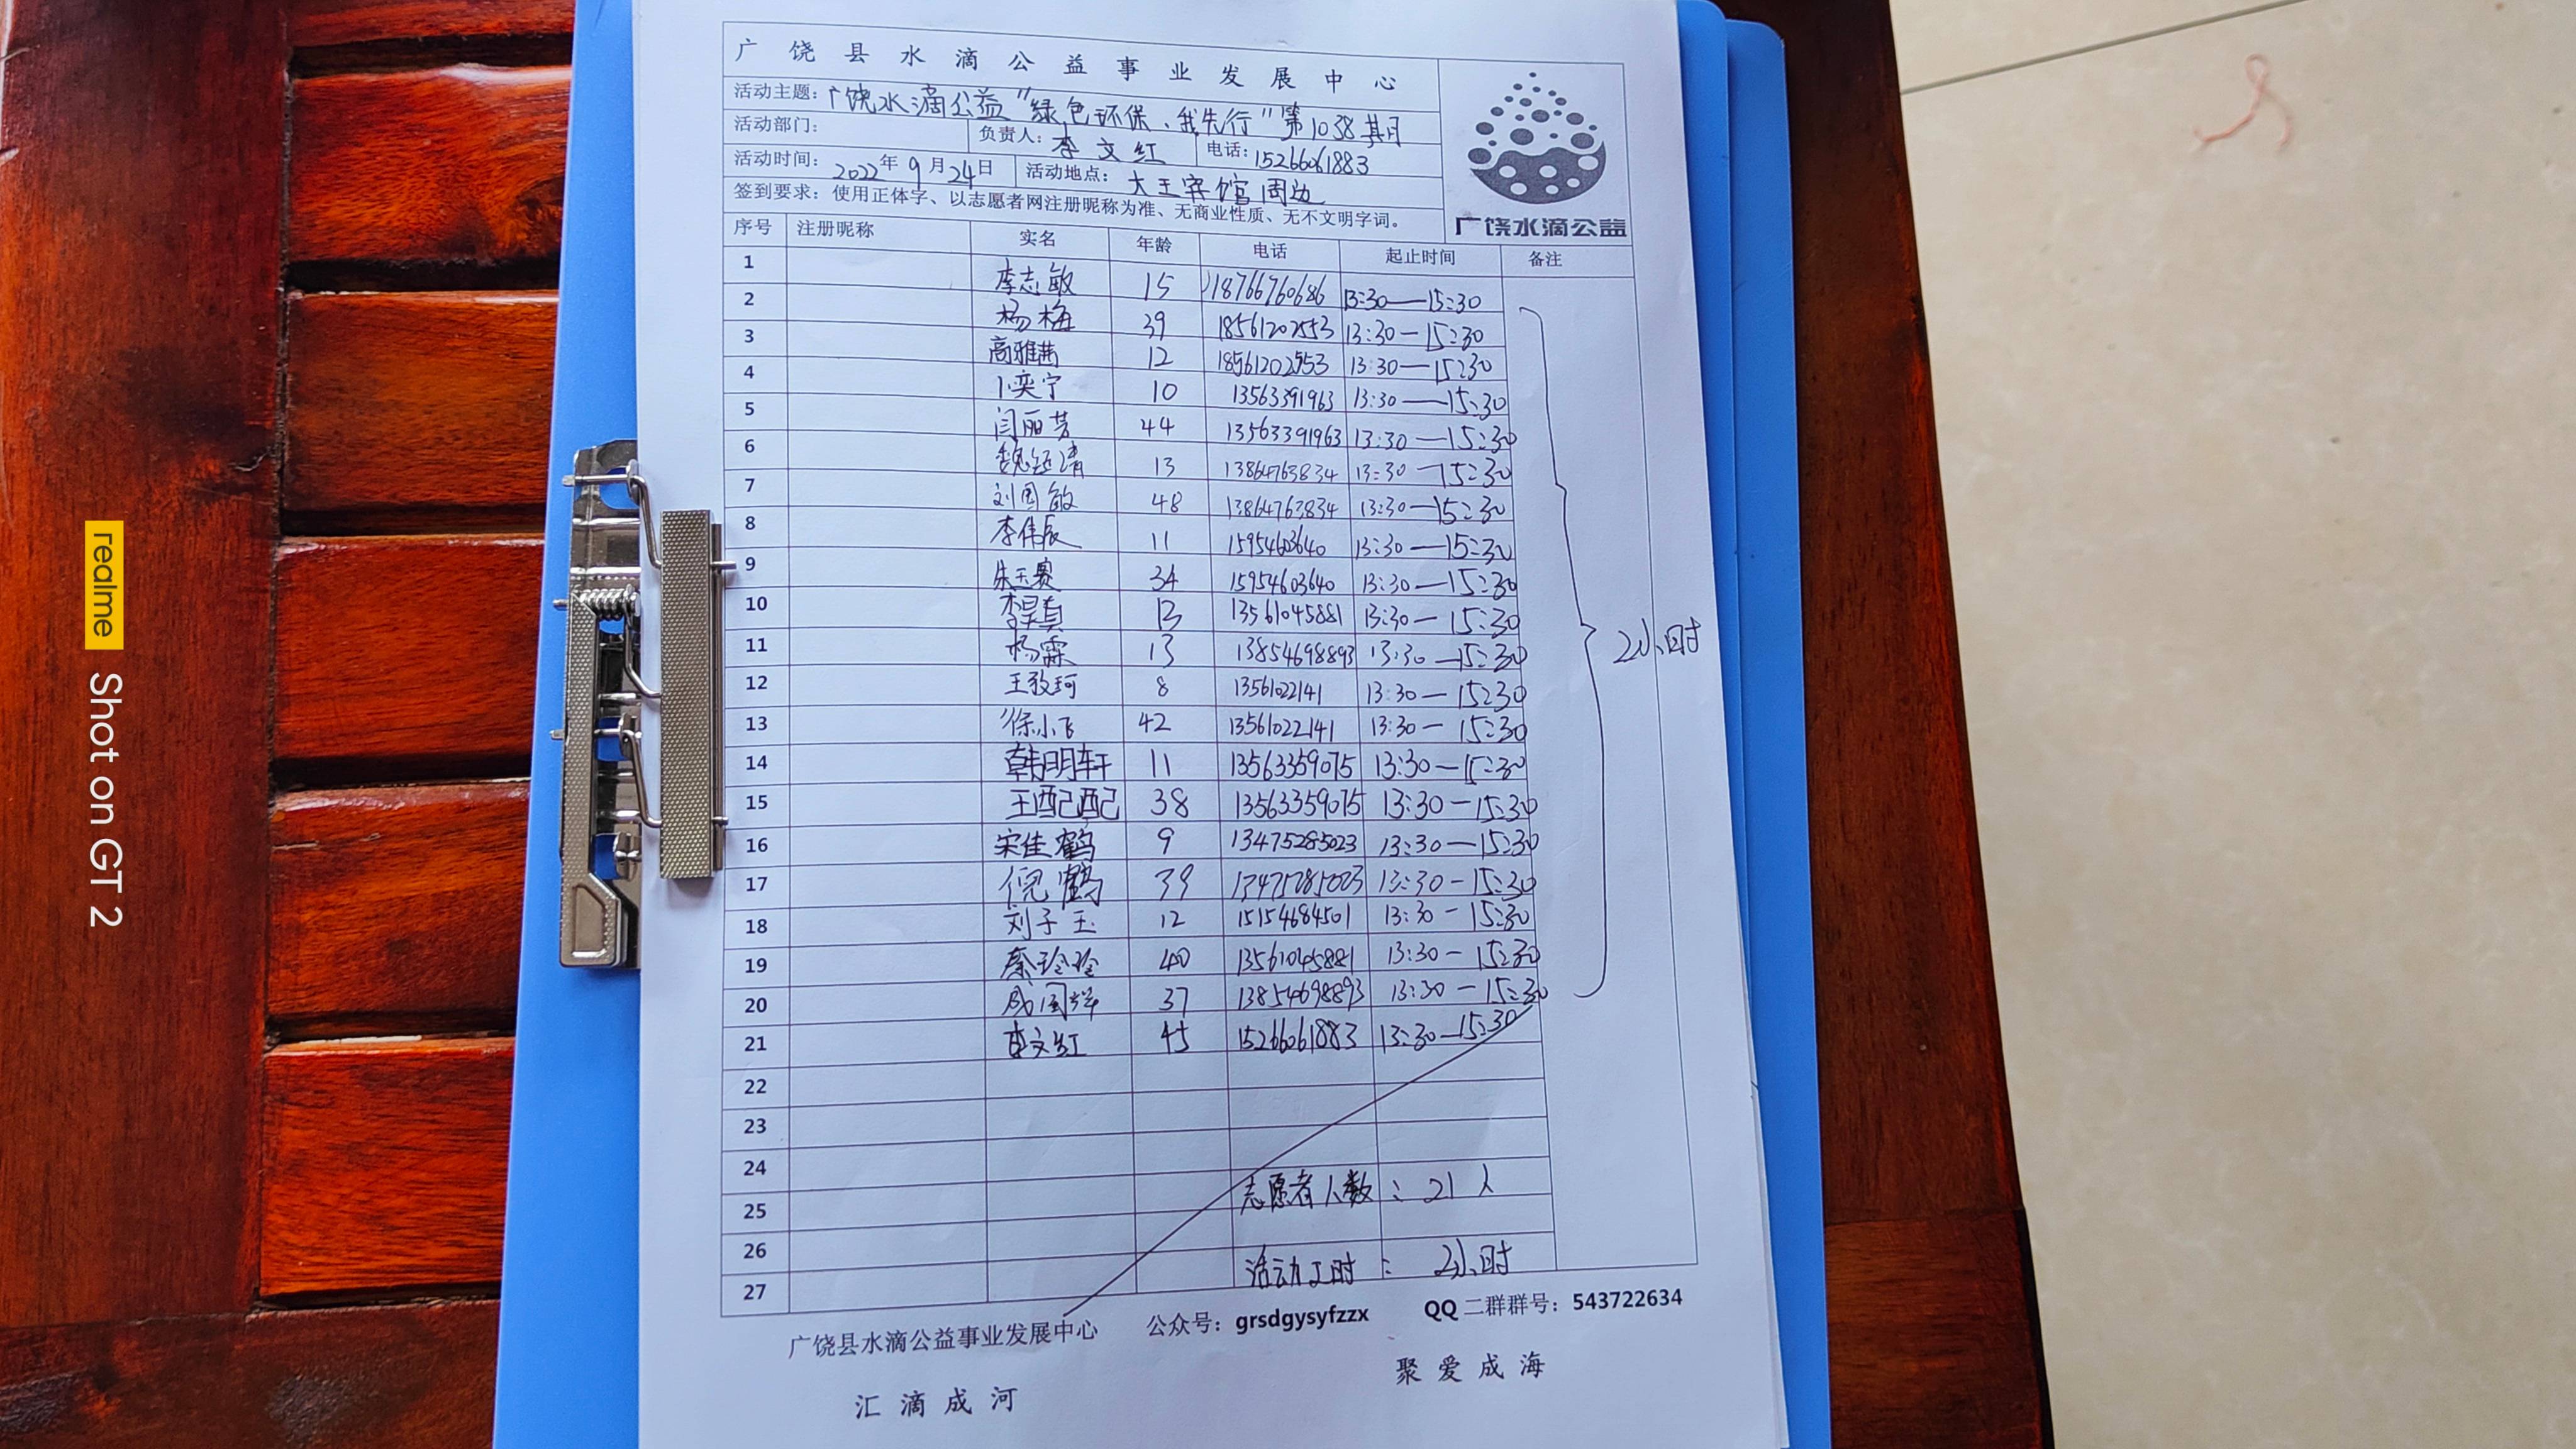 广饶县水滴公益事业发展中心
活动主题：广饶水滴公益"绿色环保、我先行"第1038期
活动部门： 负责人：李文红 电话：15266061883
活动时间：2022年9月24日 活动地点：大王宾馆周边
签到要求：使用正体字、以志愿者网注册昵称为准、无商业性质、无不文明字词。
广饶水滴公益
序号 注册昵称 实名 年龄 电话 起止时间 备注
1 李志敏 15 18766760686 13:30—15:30
2 杨梅 39 18561202553 13:30—15:30
3 高雅茜 12 18561202553 13:30—15:30
4 卜奕宁 10 13563391963 13:30—15:30
5 闫丽芳 44 13563391963 13:30—15:30
6 魏 清 13 13864763834 13:30—15:30
7 刘国敏 48 13864763834 13:30—15:30
8 李伟辰 11 1595460640 13:30—15:30
9 朱玉赛 34 15954603640 13:30—15:30
10 李昊真 13 13561045881 13:30—15:30
11 杨霖 13 13854698893 13:30—15:30
12 王 珂 8 1356102141 13:30—15:30
13 徐小飞 42 13561022141 13:30—15:30
14 韩明轩 11 13563359075 13:30—15:30
15 王配配 38 13563359075 13:30—15:30
16 宋佳鹤 9 13475285023 13:30—15:30
17 倪鹤 39 13475285023 13:30—15:30
18 刘子玉 12 15154684501 13:30—15:30
19 秦玲玲 40 13561045881 13:30—15:30
20 成国辉 37 13854698893 13:30—15:30
21 李文红 45 15266061883 13:30—15:30
2小时
22
23
24
志愿者人数：21人
25
26
活动工时：2小时
27
广饶县水滴公益事业发展中心 公众号：grsdgysyfzzx QQ二群群号：543722634
汇滴成河 聚爱成海
realme Shot on GT 2